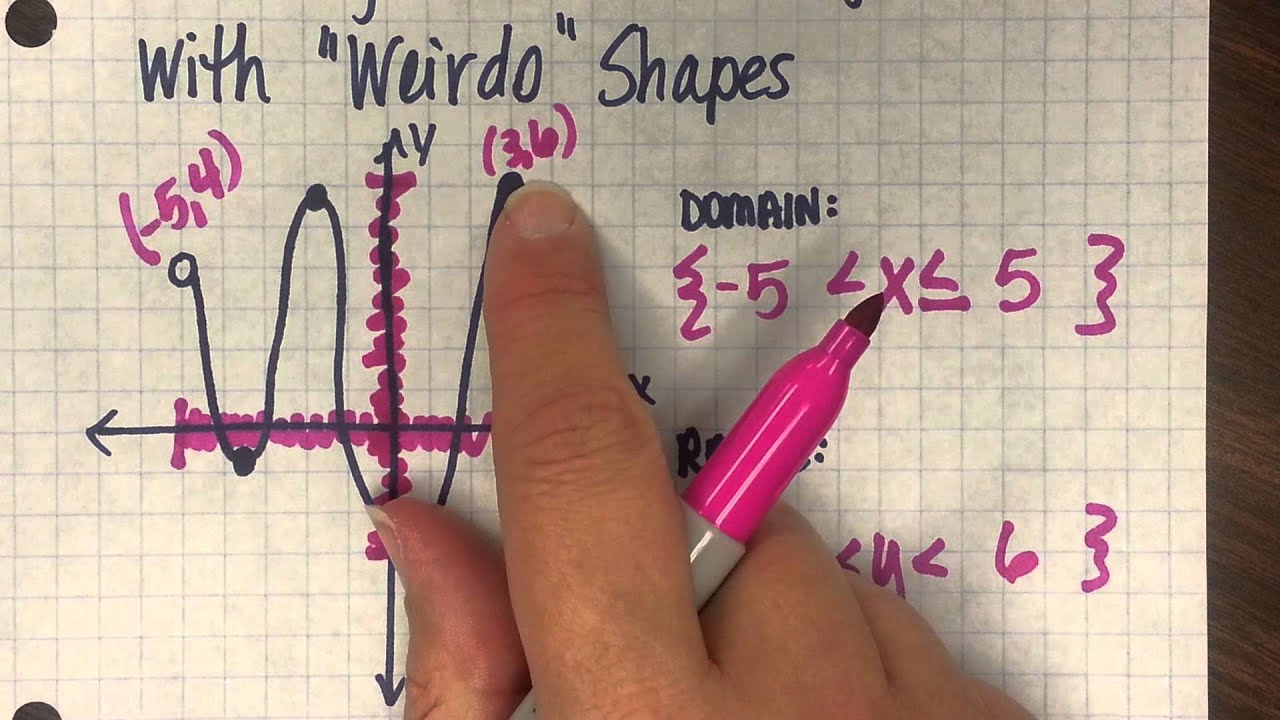 With "Weirdo" Shapes
y
(3,6)
(-5,4)
DOMAIN:
{-5 <x≤ 5 }
x
<y< 6 }